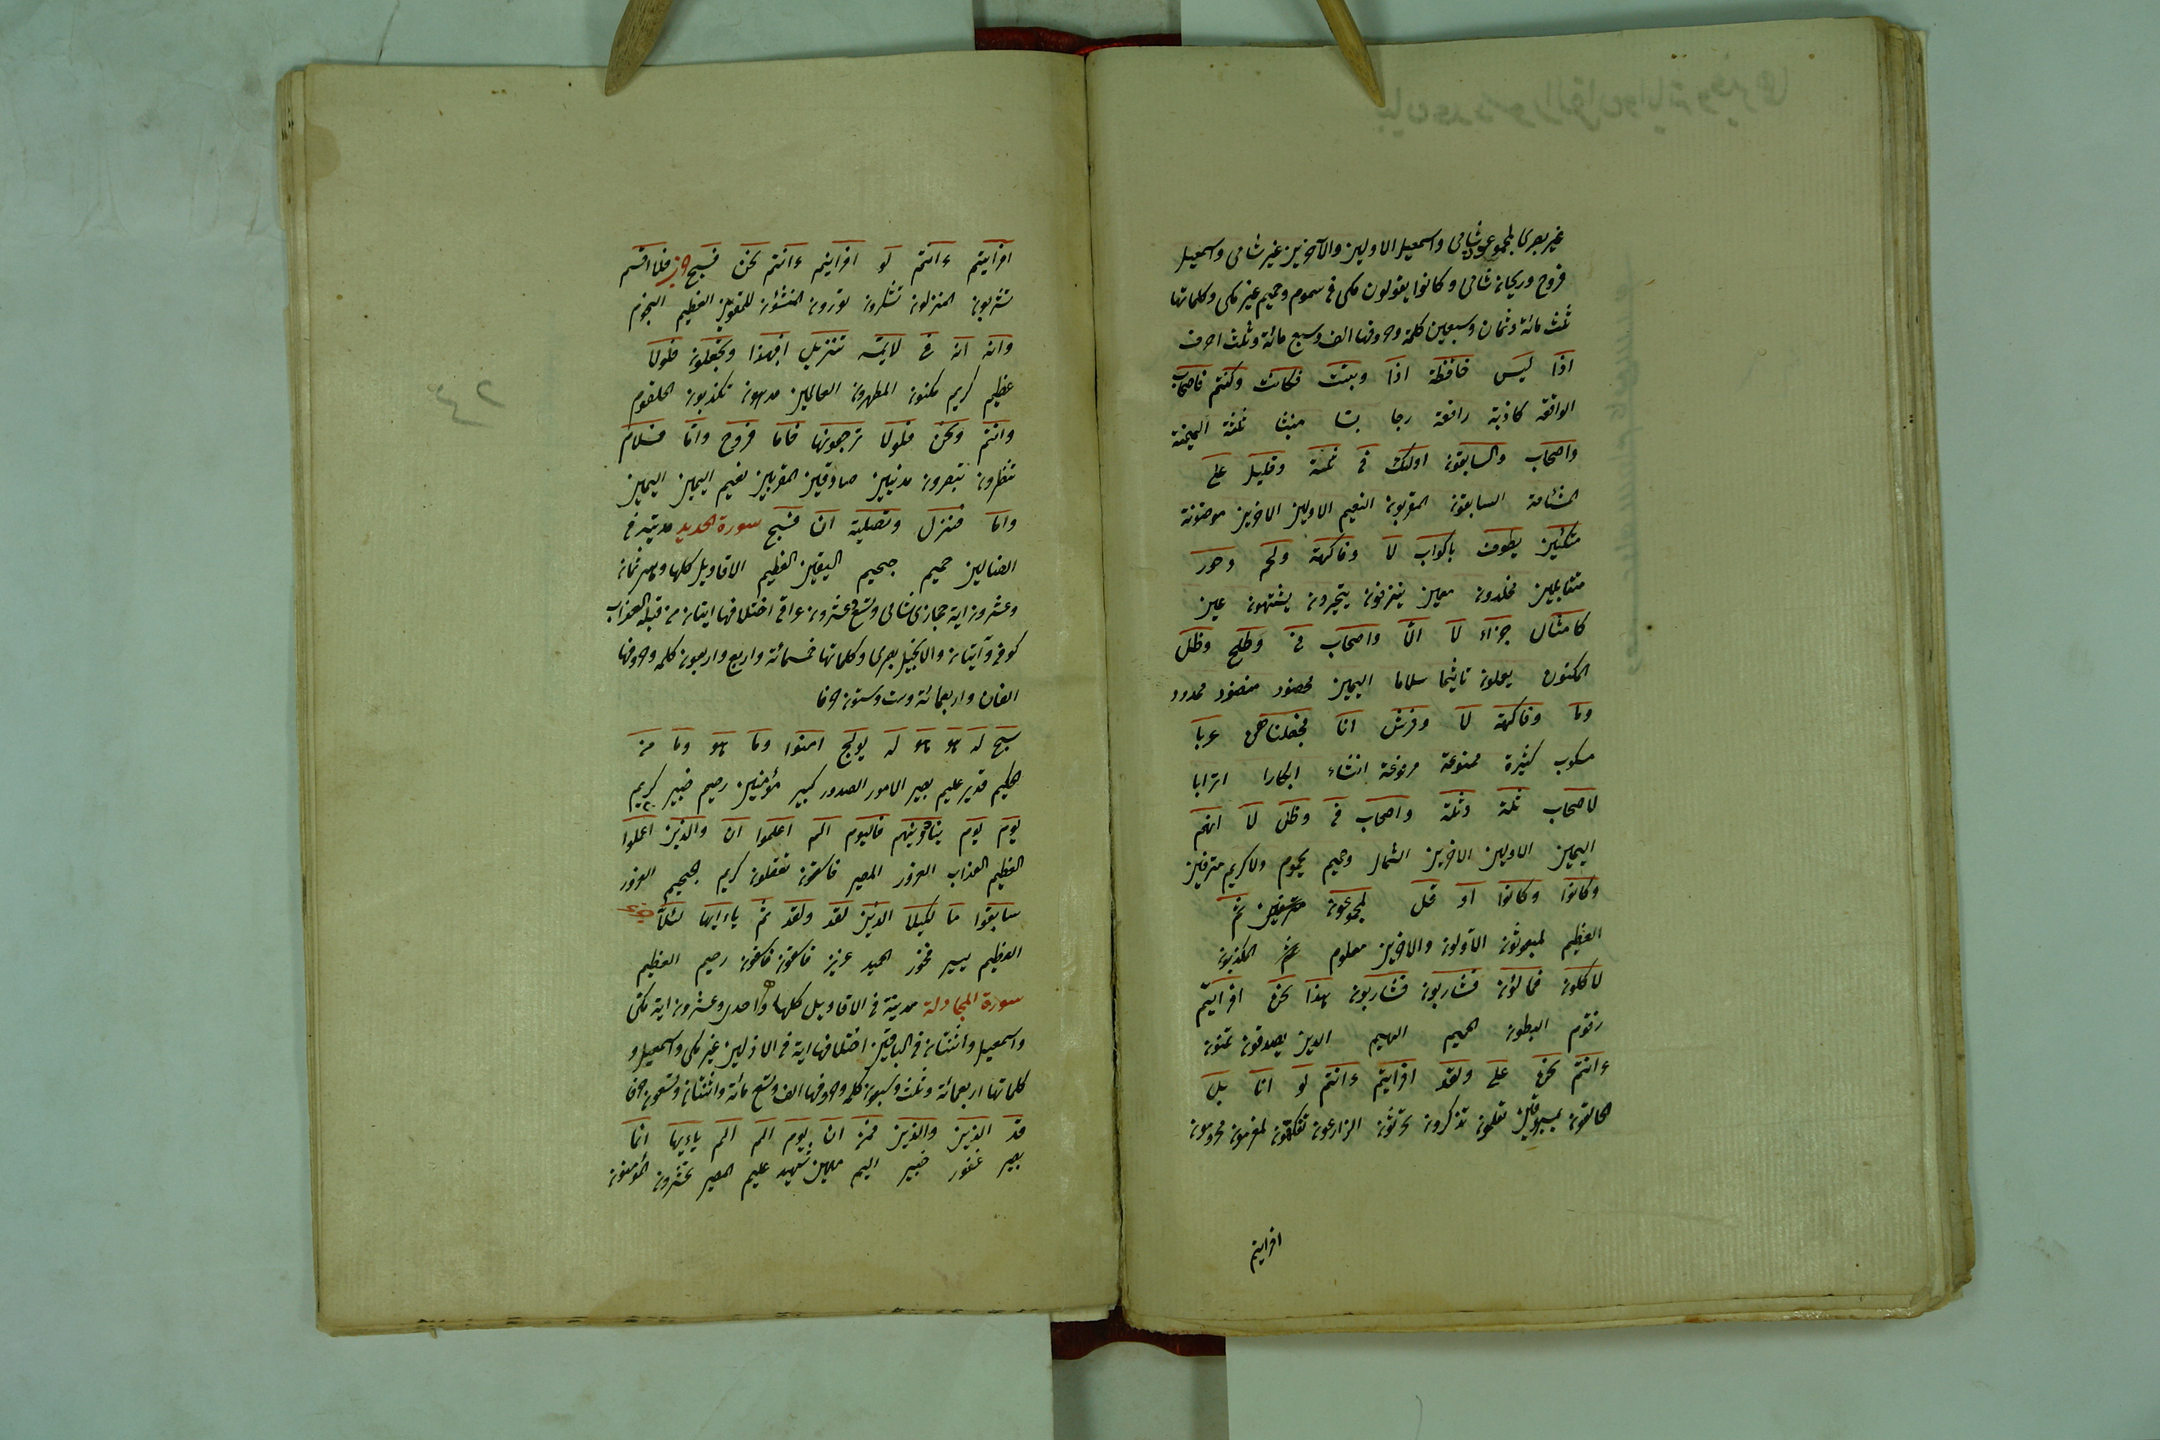 غير بصرى لمجموعون شامى واسمعيل الاولين والآخرين غير شامى واسمعيل
فروح وريحان شامى وكانوا يقولون مكى فى سموم وحميم غير مكى وكلماتها
ثلث مائة وثمان وسبعين كلمة وحروفها الف وسبع مائة وثلث احرف
اذا ليس خافظة اذا وبست فكانت وكنتم فاصحاب
الواقعة كاذبة رافعة رجا بسا منبثا ثلثة الميمنة
واصحاب والسابقون اولئك فى ثلة وقليل على
المشئمة السابقون المقربون النعيم الاولين الاخرين موضونة
متكئين يطوف باكواب لا وفاكهة ولحم وحور
متقابلين مخلدون معين ينزفون يتخيرون يشتهون عين
كامثال جزاء لا الا واصحاب فى وطلح وظل
المكنون يعملون تاثيما سلاما اليمين مخضود منضود ممدود
وما وفاكهة لا وفرش انا فجعلناهن عربا
مسكوب كثيرة ممنوعة مرفوعة انشاء ابكارا اترابا
لاصحاب ثلة وثلة واصحاب فى وظل لا انهم
اليمين الاولين الاخرين الشمال وحميم يحموم ولا كريم مترفين
وكانوا وكانوا او قل لمجموعون ثم
العظيم لمبعوثون الاولون والاخرين معلوم المكذبون
لاكلون فمالؤن فشاربون فشاربون هذا نحن افرايتم
زقوم البطون الحميم الهيم الدين تصدقون تمنون
ءانتم نحن على ولقد افرايتم ءانتم لو انا بل
الخالقون بمسبوقين تعلمون تذكرون تحرثون الزارعون تفكهون لمغرمون محرومون
افرايتم
افرايتم ءانتم لو افرايتم ءانتم نحن فسبح فلا اقسم
تشربون المنزلون تشكرون تورون المنشؤن للمقوين العظيم النجوم
وانه انه فى لا يمسه تنزيل افبهذا وتجعلون فلولا
عظيم كريم مكنون المطهرون العالمين مدهنون تكذبون الحلقوم
وانتم ونحن فلولا ترجعونها فاما فروح واما فسلام
تنظرون تبصرون مدينين صادقين المقربين نعيم اليمين اليمين
واما فنزل وتصلية ان فسبح سورة الحديد مدنية فى
الضالين حميم جحيم اليقين العظيم الاقاويل كلها وهى ثمان
وعشرون اية حجازى شامى وتسع وعشرون عراقى اختلافها ايتان من قبله العذاب
كوفى وآيتان والانجيل بصرى وكلماتها خمسمائة واربع واربعون كلمه وحروفها
الفان واربعمائة وست وستون حرفا
سبح له هو هو له يولج امنوا وما هو وما من
حكيم قدير عليم بصير الامور الصدور كبير مؤمنين رحيم خبير كريم
يوم يوم ينادونهم فاليوم الم اعلموا ان والذين اعلموا
العظيم العذاب الغرور المصير فاسقون تعقلون كريم الجحيم الغرور
سابقوا ما لكيلا الذين لقد ولقد ثم ياءايها لئلا
العظيم يسير فخور الحميد عزيز فاسقون فاسقون رحيم العظيم
سورة المجادلة مدنية فى الاقاويل كلها واحدى وعشرون اية مكى
واسمعيل واثنتان فى الباقين اختلافها اية فى الاذلين غير مكى واسمعيل و
كلماتها اربعمائة وثلث وسبعون كلمه وحروفها الف وتسع مائة واثنتان وتسعون حرفا
قد الذين والذين فمن ان يوم الم الم ياءيها انما
بصير غفور خبير اليم مهين شهيد عليم المصير تحشرون المؤمنون